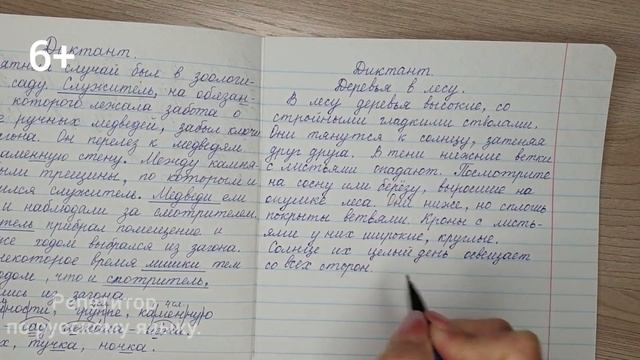 6+
Диктант.
случай был в зоологи-
саду. Служитель, на обязан-
которого лежала забота о
ручных медведей, забыл ключи
Он перелез к медведям
каменную стену. Между камня-
трещины, по которым и
служитель. Медведи ели
и наблюдали за смотрителем.
прибрал помещение и
ходом выбрался из загона.
некоторое время мишки тем
что и смотритель.
из загона.
группе, каменную
тучка, ночка.
Диктант.
Деревья в лесу.
В лесу деревья высокие, со
стройными гладкими стволами.
Они тянутся к солнцу, затеняя
друг друга. В тени нижние ветки
с листьями опадают. Посмотрите
на сосну или берёзу, выросшие на
опушке леса. Они ниже, но сплошь
покрыты ветвями. Кроны с листь-
ями у них широкие, круглые.
Солнце их целый день освещает
со всех сторон.
Репетитор
по русскому языку.